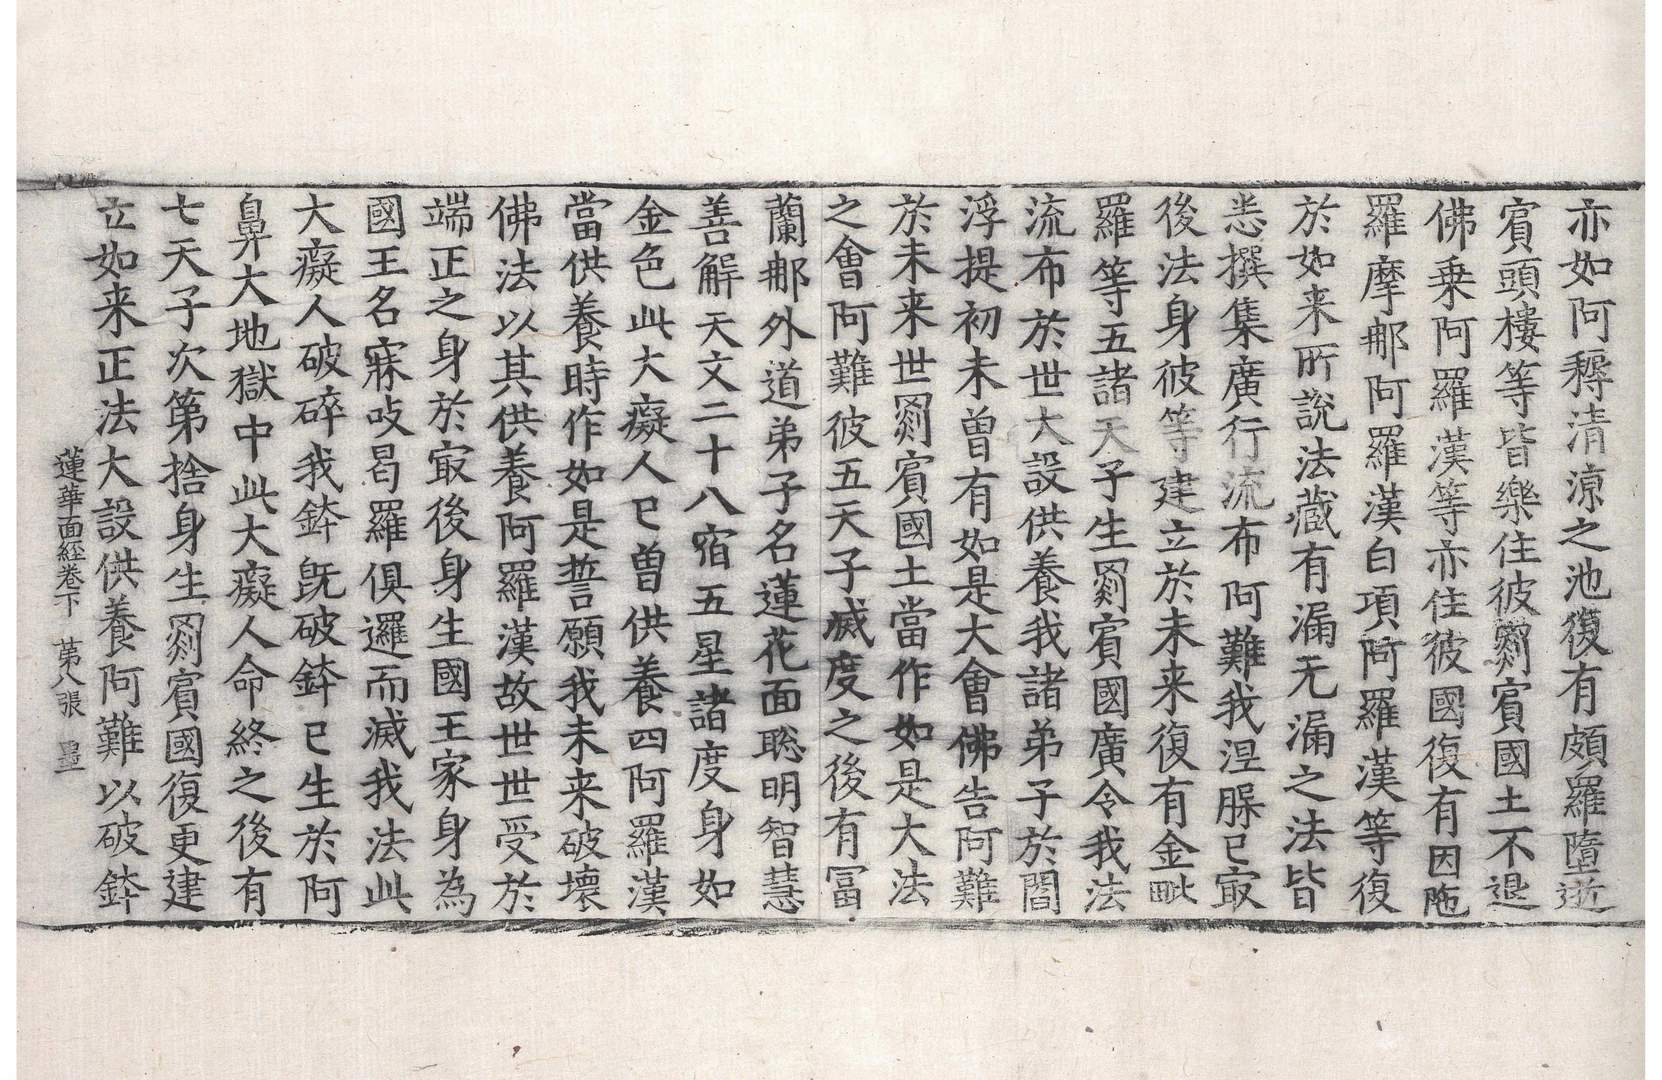 亦如阿耨清涼之池復有頗羅墮逝
賓頭樓等皆樂住彼罽賓國土不退
佛乗阿羅漢等亦住彼國復有因陁
羅摩那阿羅漢白項阿羅漢等復
於如来所說法藏有漏无漏之法皆
悉撰集廣行流布阿難我涅槃已㝡
後法身彼等建立於未来復有金毗
羅等五諸天子生罽賓國廣令我法
流布於世大設供養我諸弟子於閻
浮提初未曾有如是大會佛告阿難
於未来世罽賓國土當作如是大法
之會阿難彼五天子滅度之後有冨
蘭那外道弟子名蓮花面聡明智慧
善解天文二十八宿五星諸度身如
金色此大癡人已曾供養四阿羅漢
當供養時作如是誓願我未来破壞
佛法以其供養阿羅漢故世世受於
端正之身於㝡後身生國王家身為
國王名寐吱曷羅俱邏而滅我法此
大癡人破碎我鉢既破鉢已生於阿
鼻大地獄中此大癡人命終之後有
七天子次第捨身生罽賓國復更建
立如来正法大設供養阿難以破鉢
蓮華面經卷下 第八張 量